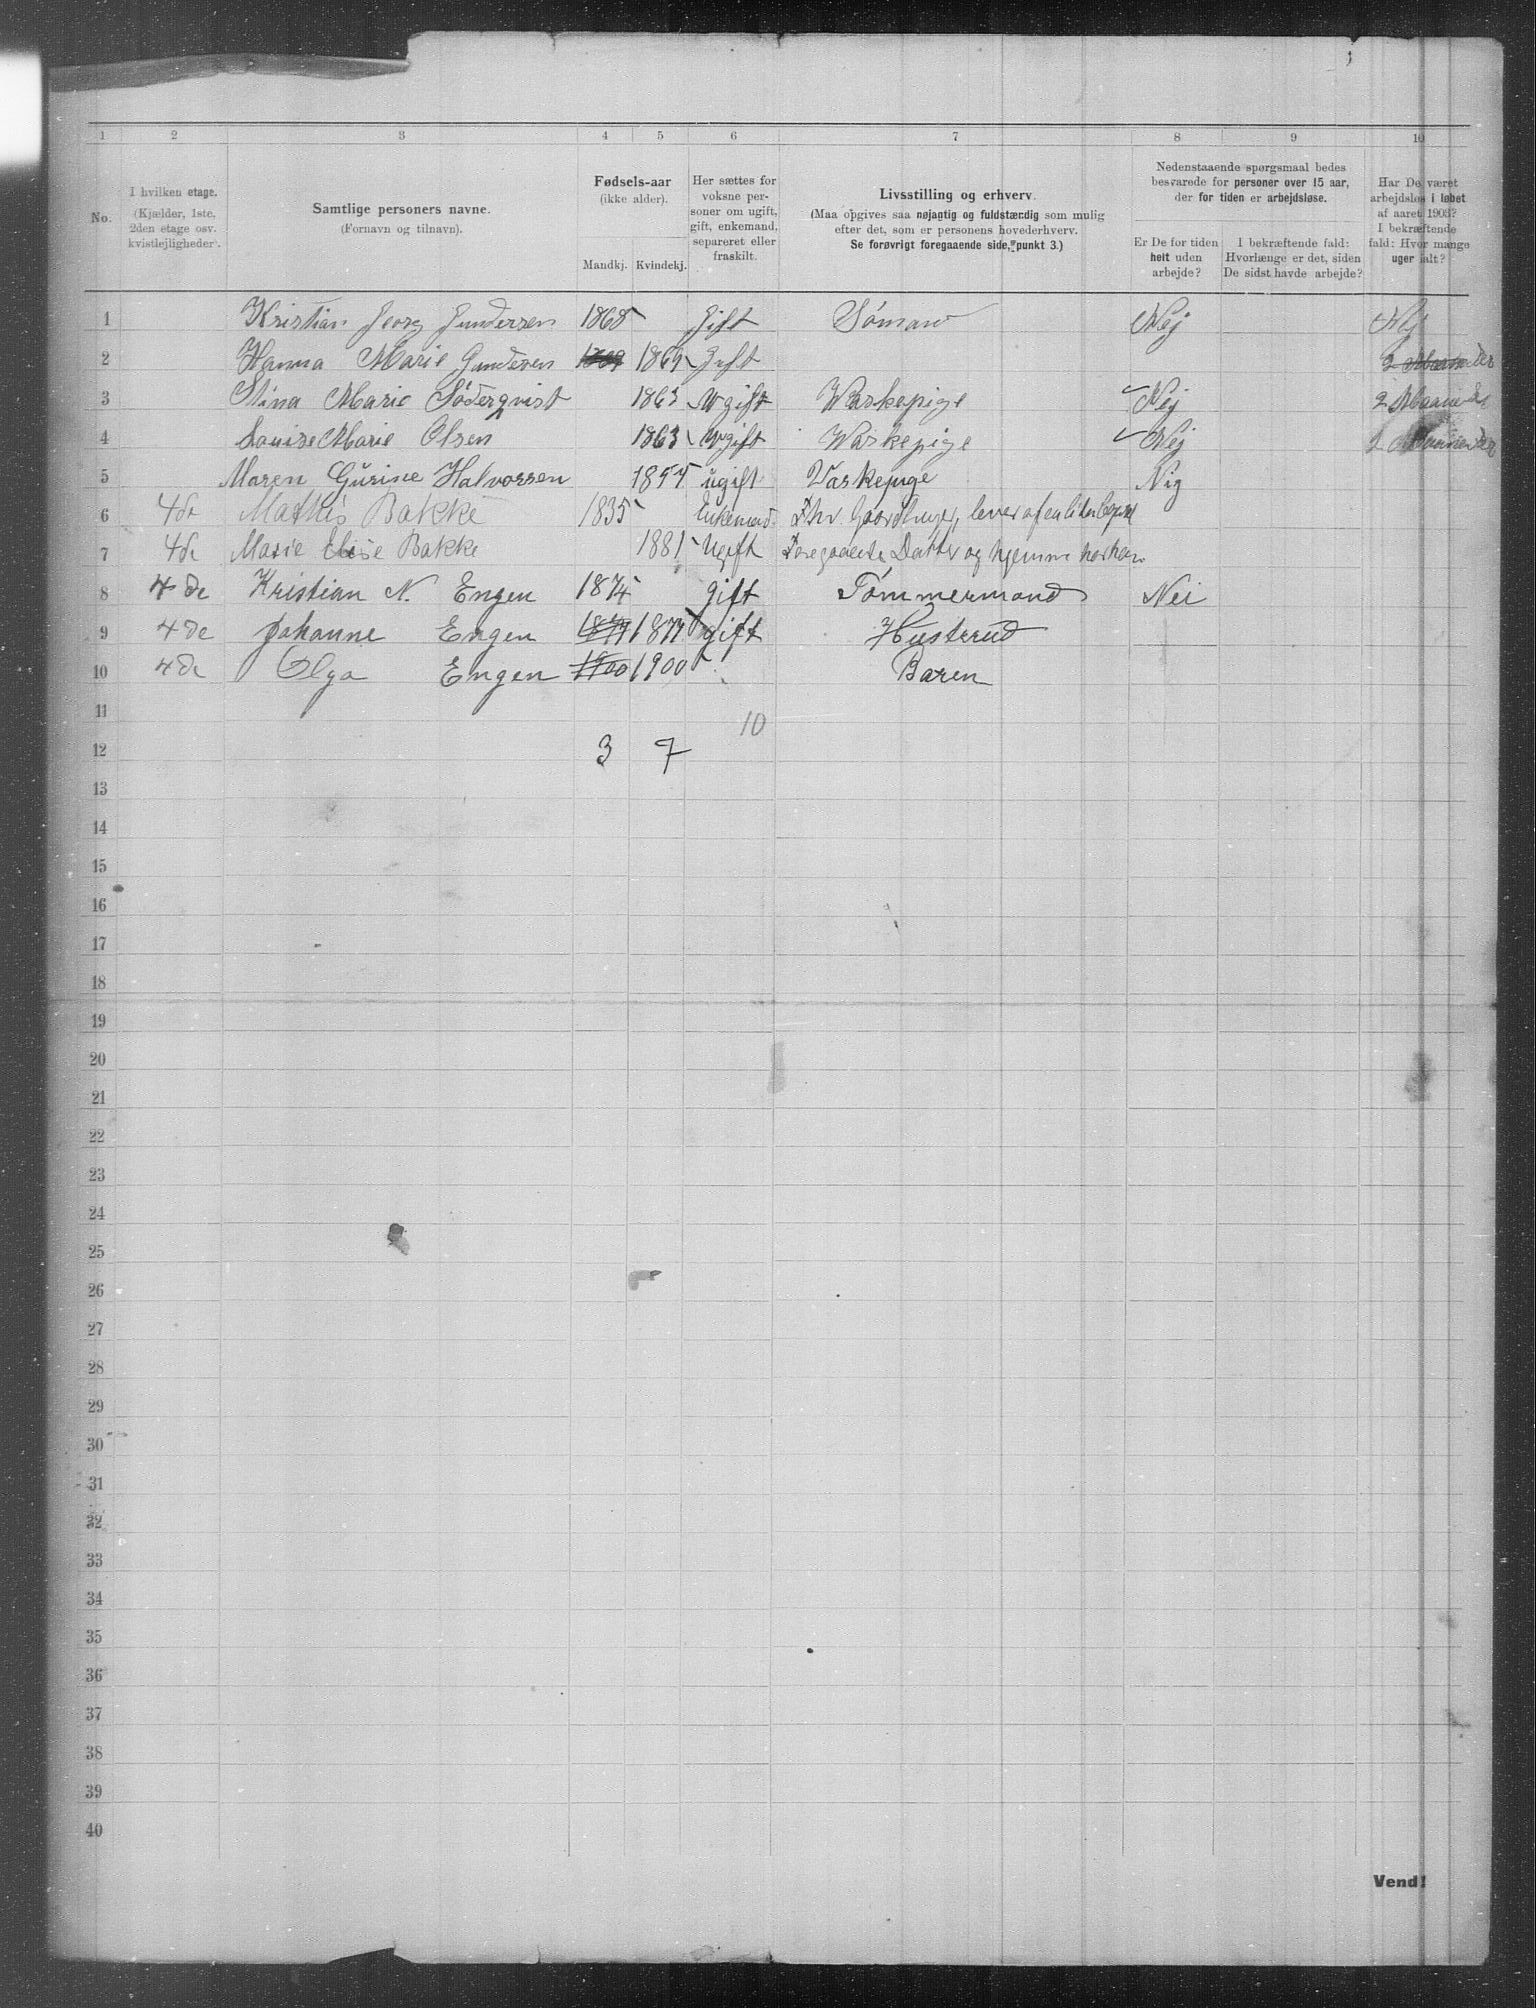 1 2 3 4 5 6 7 8 9 10
No.
I hvilken etage.
(Kjælder, 1ste,
2den etage osv.
kvistlejligheder).
Samtlige personers navne.
(Fornavn og tilnavn).
Fødsels-aar
(ikke alder).
Mandkj. Kvindekj.
Her sættes for
voksne per-
soner om ugift,
gift, enkemand,
separeret eller
fraskilt.
Livsstilling og erhverv.
(Maa opgives saa nøjagtig og fuldstændig som mulig
efter det, som er personens hovederhverv.
Se forøvrigt foregaaende side, punkt 3.)
Nedenstaaende spørgsmaal bedes
besvarede for personer over 15 aar,
der for tiden er arbejdsløse.
Er De for tiden
helt uden
arbejde?
I bekræftende fald:
Hvorlænge er det, siden
De sidst havde arbejde?
Har De været
arbejdsløs i løbet
af aaret 1903?
I bekræftende
fald: Hvor mange
uger ialt?
1 Kristian Georg Gundersen 1868 Gift Sømand Nej Nej
2 Hanna Marie Gundersen 1869 1869 Gift 2 Maaneder
3 Stina Marie Söderqvist 1863 Ugift Vaskepige Nej 2 Maaneder
4 Louise Marie Olsen 1863 Ugift Vaskepige Nej 2 Maaneder
5 Maren Gurine Halvorsen 1854 ugift Vaskepige Nig
6 4de Mathis Bakke 1835 Enkemand Fhv. Gaardbruger, lever af en liten
7 4de Marie Elise Bakke 1881 Ugift Foregaaende Datter og hjemme hos ham
8 4de Kristian N. Engen 1874 gift Tømmermand Nei
9 4de Johanne Engen 1877 1877 gift Hustrud
10 4de Olga Engen 1900 1900 Baren
11 10
12 3 7
13
14
15
16
17
18
19
20
21
22
23
24
25
26
27
28
29
30
31
32
33
34
35
36
37
38
39
40
Vend!